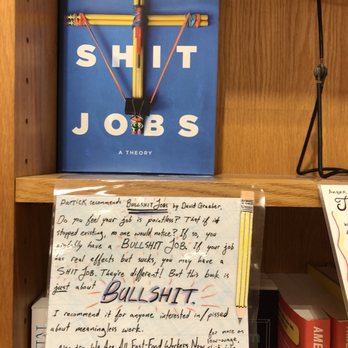 SHIT
JOBS
A THEORY
Derrick recommends BULLSHIT JOBS by David Graeber.
Do you feel your job is pointless? That if it
stopped existing, no one would notice? If so, you
have a BULLSHIT JOB. If your job
has real effects but sucks, you may have a
SHIT JOB. They're different! But this book is
just about BULLSHIT.
I recommend it for anyone interested in/pissed
about meaningless work.
for more on
low-wage,
We Are All Fast-Food Workers Now